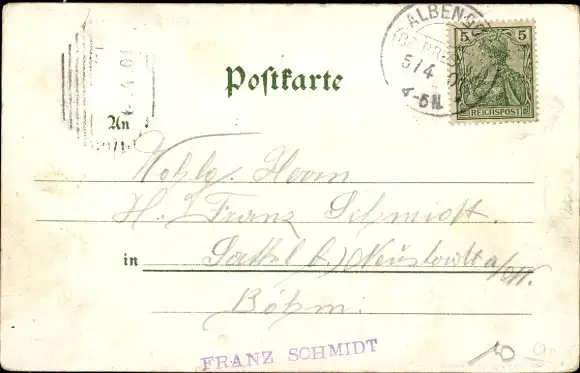 ALBEN
5/4
4-5N.
5 5
REICHSPOST
4 01
Postkarte
An
Wohlg. Herrn
H. Franz Schmidt.
in Sattel b/Neustadt a/M.
Böhm.
FRANZ SCHMIDT
10